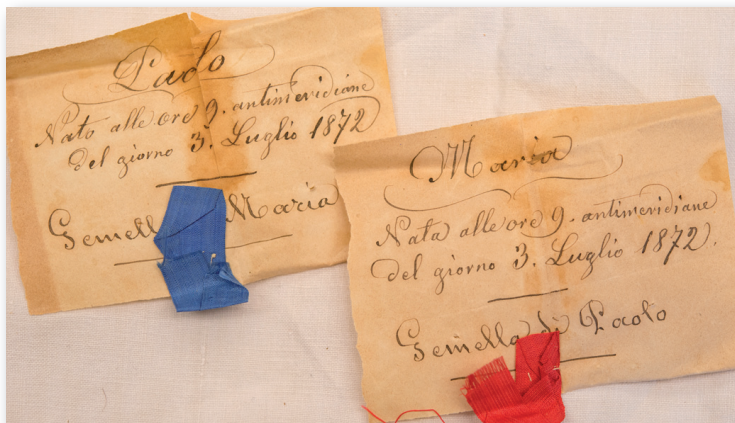 Paolo
Nato alle ore 9. antimeridiane
del giorno 3. Luglio 1872
Gemell Maria
Maria
Nata alle ore 9. antimeridiane
del giorno 3. Luglio 1872.
Gemella di Paolo